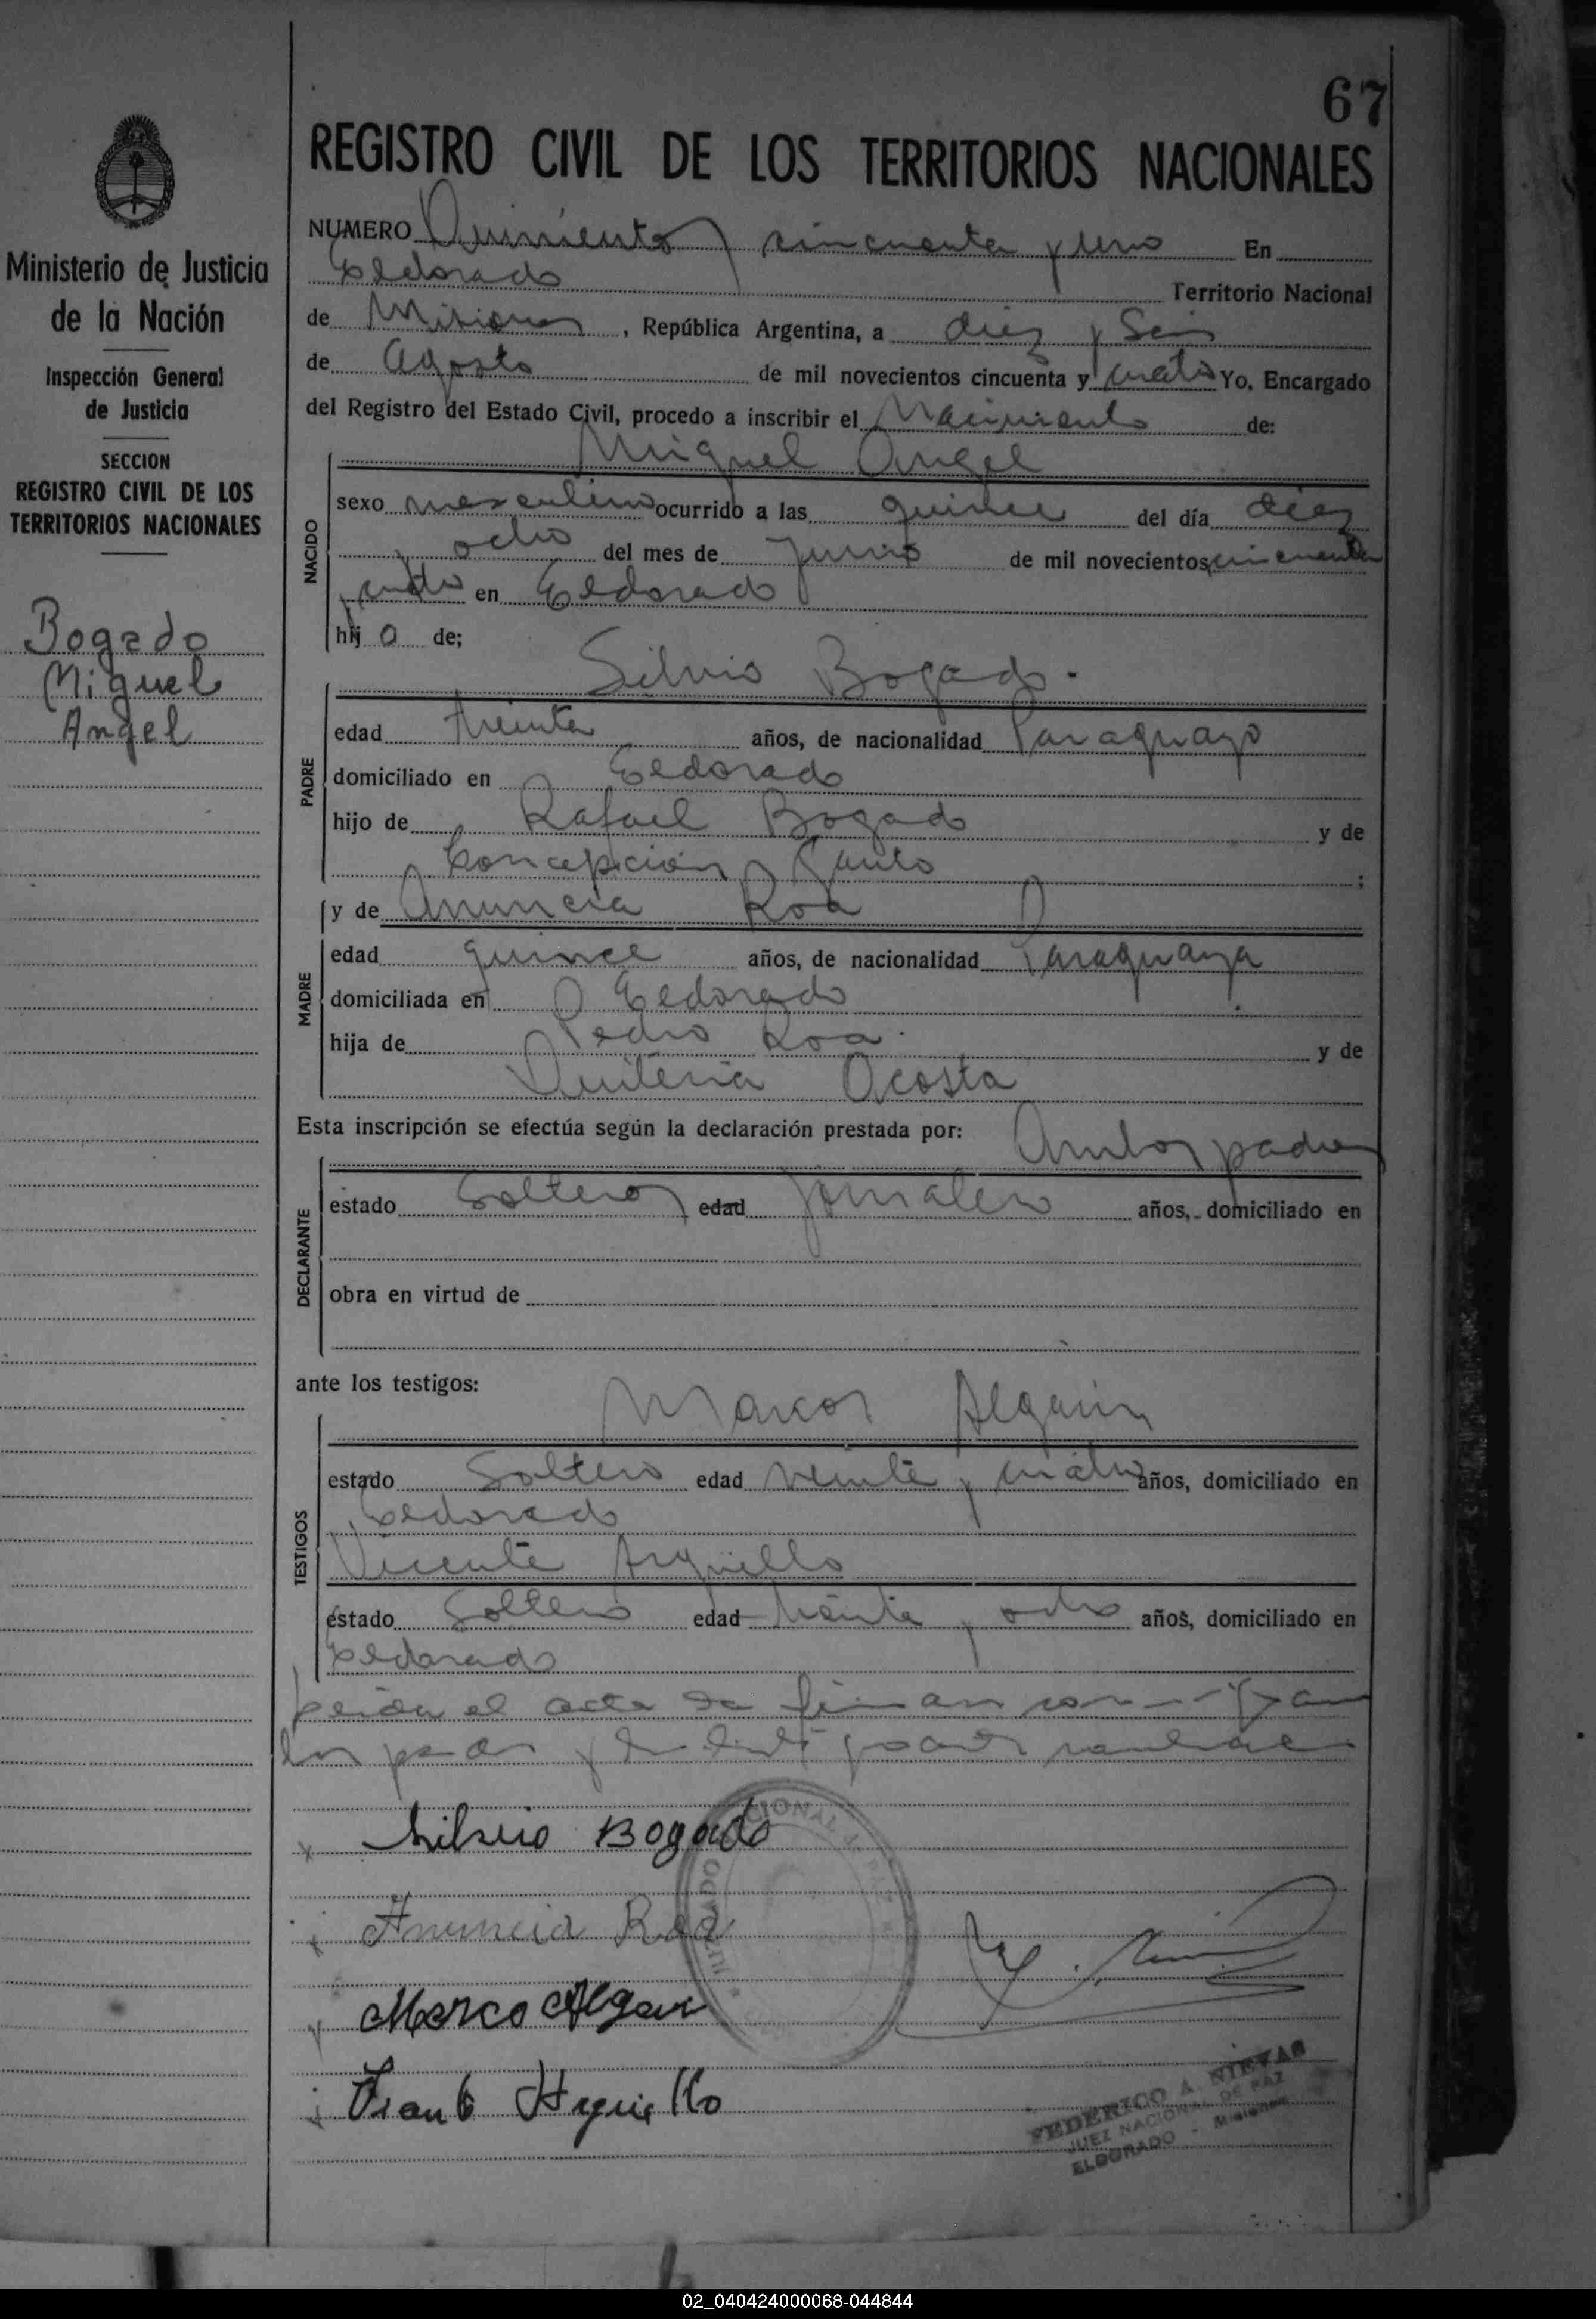 67
REGISTRO CIVIL DE LOS TERRITORIOS NACIONALES
Ministerio de Justicia
de la Nación
Inspección General
de Justicia
SECCION
REGISTRO CIVIL DE LOS
TERRITORIOS NACIONALES
Bogado
Miguel
Angel
NUMERO Quinientos cincuenta y uno En
Eldorado Territorio Nacional
de Misiones, República Argentina, a diez y Seis
de Agosto de mil novecientos cincuenta y cuatro Yo, Encargado
del Registro del Estado Civil, procedo a inscribir el Nacimiento de:
Miguel Angel
NACIDO
sexo masculino ocurrido a las quince del día diez
y ocho del mes de Junio de mil novecientos cincuenta
y cuatro en Eldorado
hijo de;
Silvio Bogado.
PADRE
edad treinta años, de nacionalidad Paraguayo
domiciliado en Eldorado
hijo de Rafael Bogado y de
Concepción ;
y de Anuncia Roa
MADRE
edad quince años, de nacionalidad Paraguaya
domiciliada en Eldorado
hija de Pedro Roa y de
Quiteria Acosta
Esta inscripción se efectúa según la declaración prestada por: Ambos padres
DECLARANTE
estado Solteros edad Jornalero años, domiciliado en
obra en virtud de
ante los testigos:
Marcos Algarin
TESTIGOS
estado Soltero edad veinte y cuatro años, domiciliado en
Eldorado
Vicente Arguello
estado Soltero edad treinta y ocho años, domiciliado en
Eldorado
el acta la firman
los
Silvio Bogado
Anuncia Roa
Marco
Arguello
FEDERICO A. NIEVAS
JUEZ NACIONAL DE PAZ
ELDORADO - Misiones
02_040424000068-044844